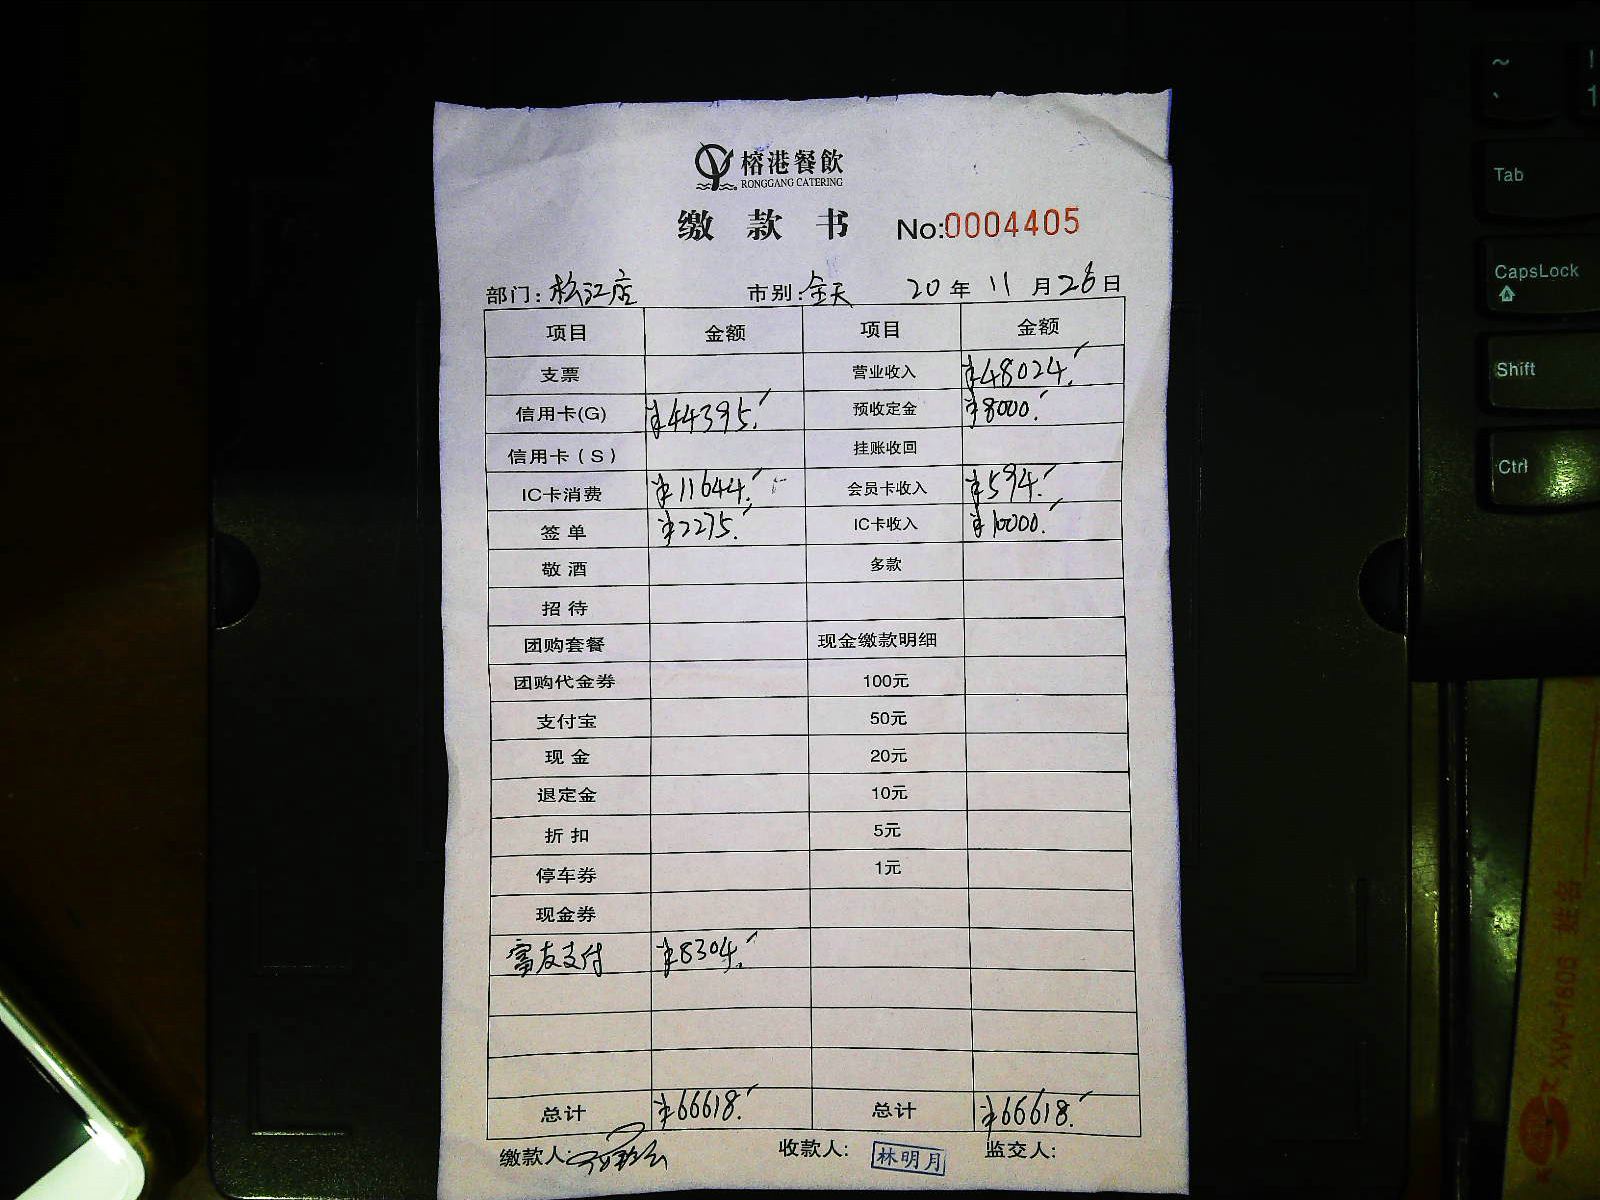 榕港餐飲
RONGGANG CATERING
缴款书 No:0004405
部门:松江店 市别:全天 20年11月26日
项目 金额 项目 金额
支票 营业收入 ¥48024.
信用卡(G) ¥44395. 预收定金 ¥8000.
信用卡(S) 挂账收回
IC卡消费 ¥11644. 会员卡收入 ¥594.
签单 ¥2275. IC卡收入 ¥10000.
敬酒 多款
招待
团购套餐 现金缴款明细
团购代金券 100元
支付宝 50元
现金 20元
退定金 10元
折扣 5元
停车券 1元
现金券
富友支付 ¥8304.
总计 ¥66618. 总计 ¥66618.
缴款人: 收款人: 林明月 监交人:
~
`
!
1
Tab
CapsLock
Shift
Ctrl
姓名